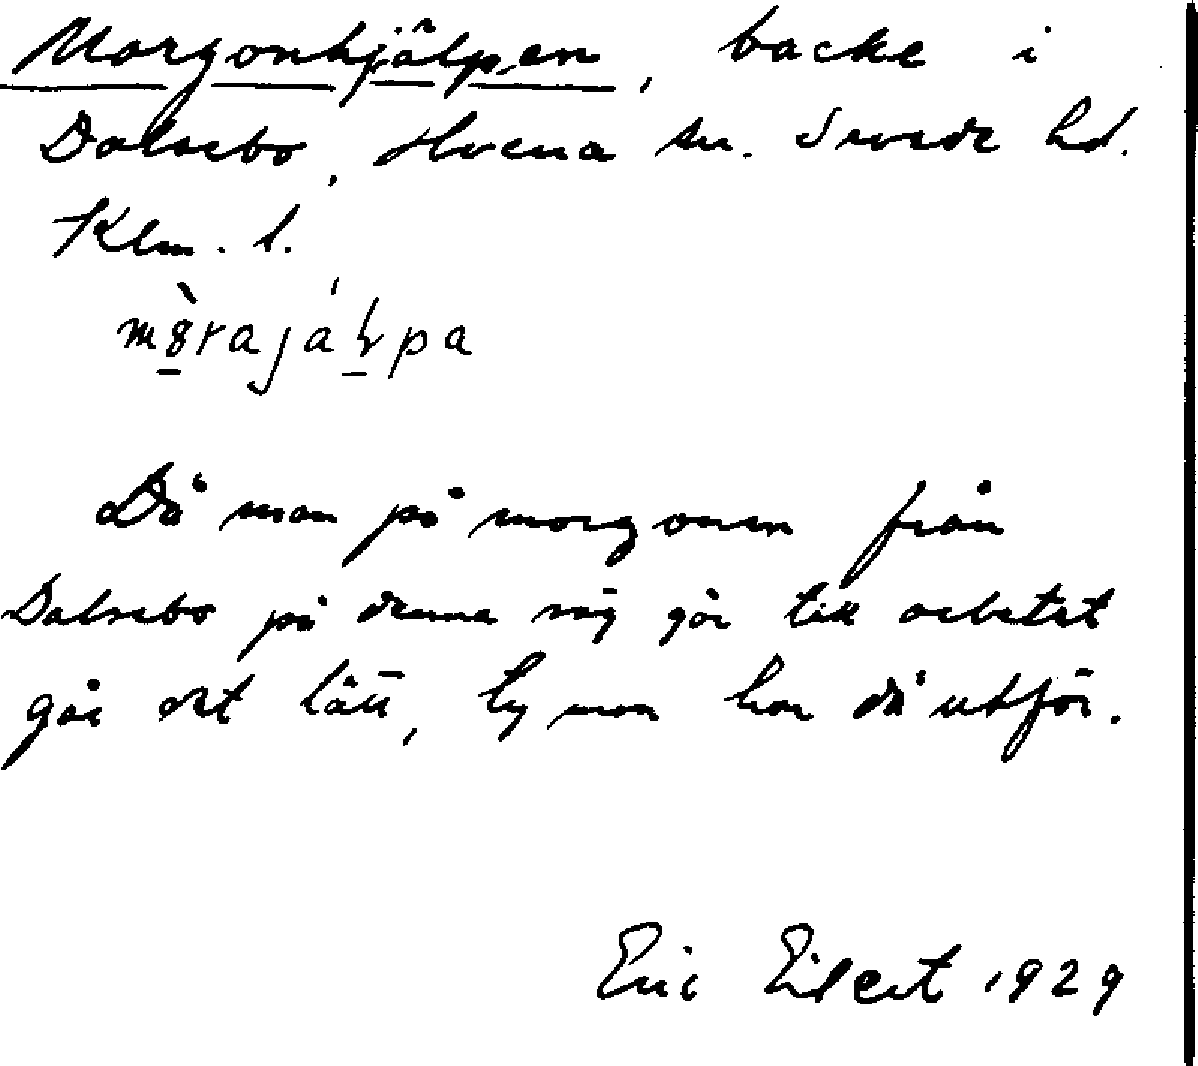 Morgonhjälpen, backe i
Dalsebo, Hvena sn. Sevede hd.
Klm. l.
Då man på morgonen från
Dalsebo på denna väg går till arbetet
går det lätt, ty man har då utför.
Eric Eilert 1929